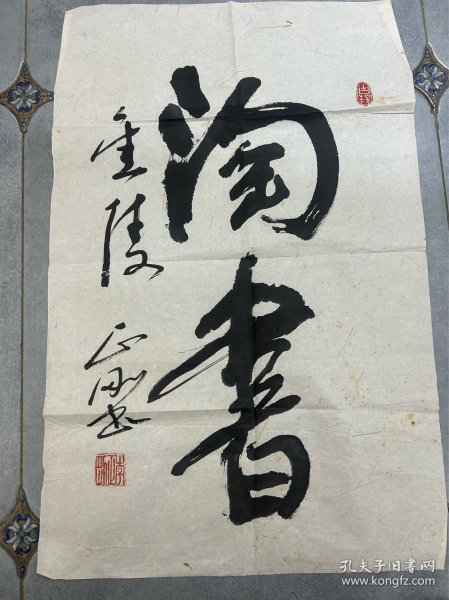 淘書
金陵
正刚书
孔夫子旧书网
www.kongfz.com